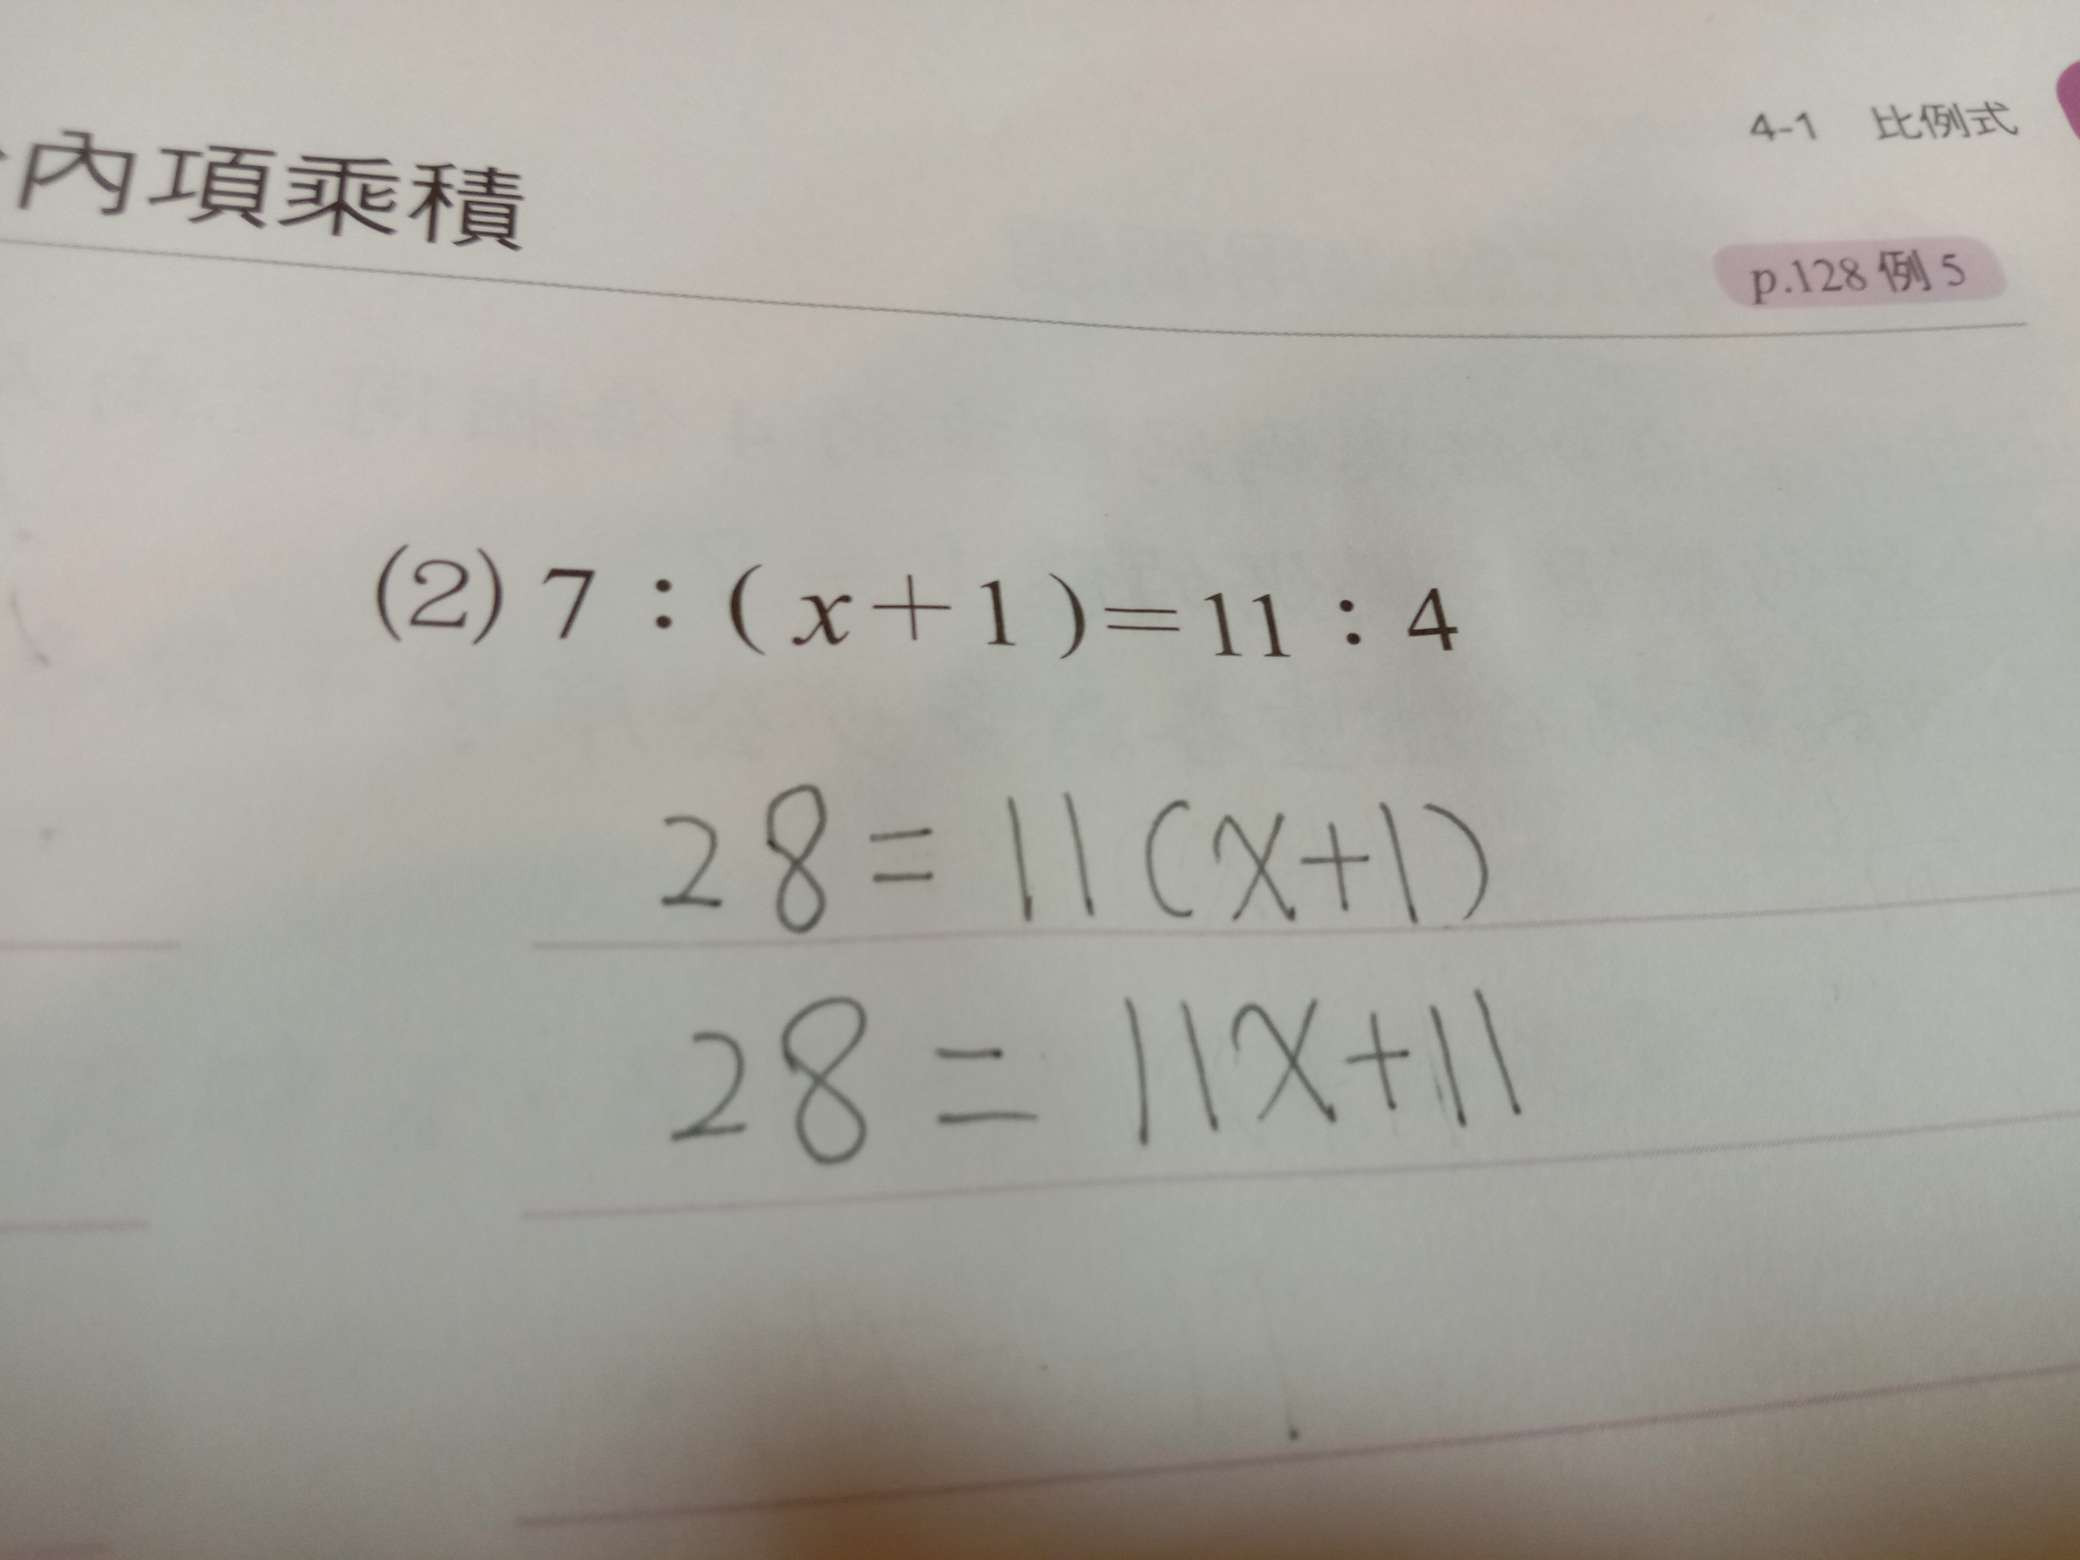 4-1 比例式
內項乘積
p.128 例 5
(2) 7：( x＋1 )＝11：4
28 = 11(x+1)
28 = 11x+11